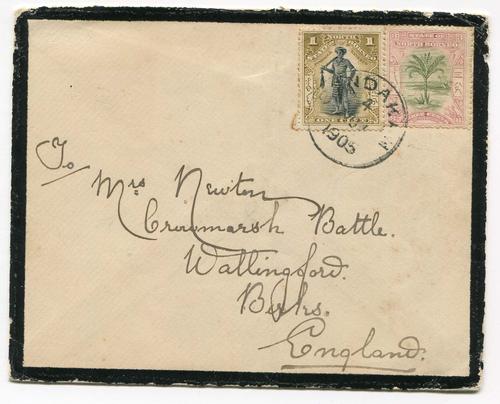 1 NORTH 1
STATE OF BORNEO
ONE CENT
STATE OF
NORTH BORNEO
DAKAN
4
1905
To/
Mrs Newton
Crowmarsh Battle.
Wallingford.
Berks.
England.